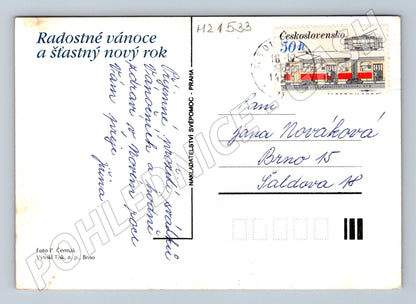 Radostné vánoce
a šťastný nový rok
M21533
Československo
50 h
Příjemné prožití svátků
Vánočních a hodně
zdraví v Novém roce
Vám přeje
Jiřina
NAKLADATELSTVÍ SVĚPOMOC - PRAHA
Paní
Jana Nováková
Brno 15
Šaldova 18
Foto P. Čermák
Vytiskl Tisk, n. p., Brno
POHLEDNICE